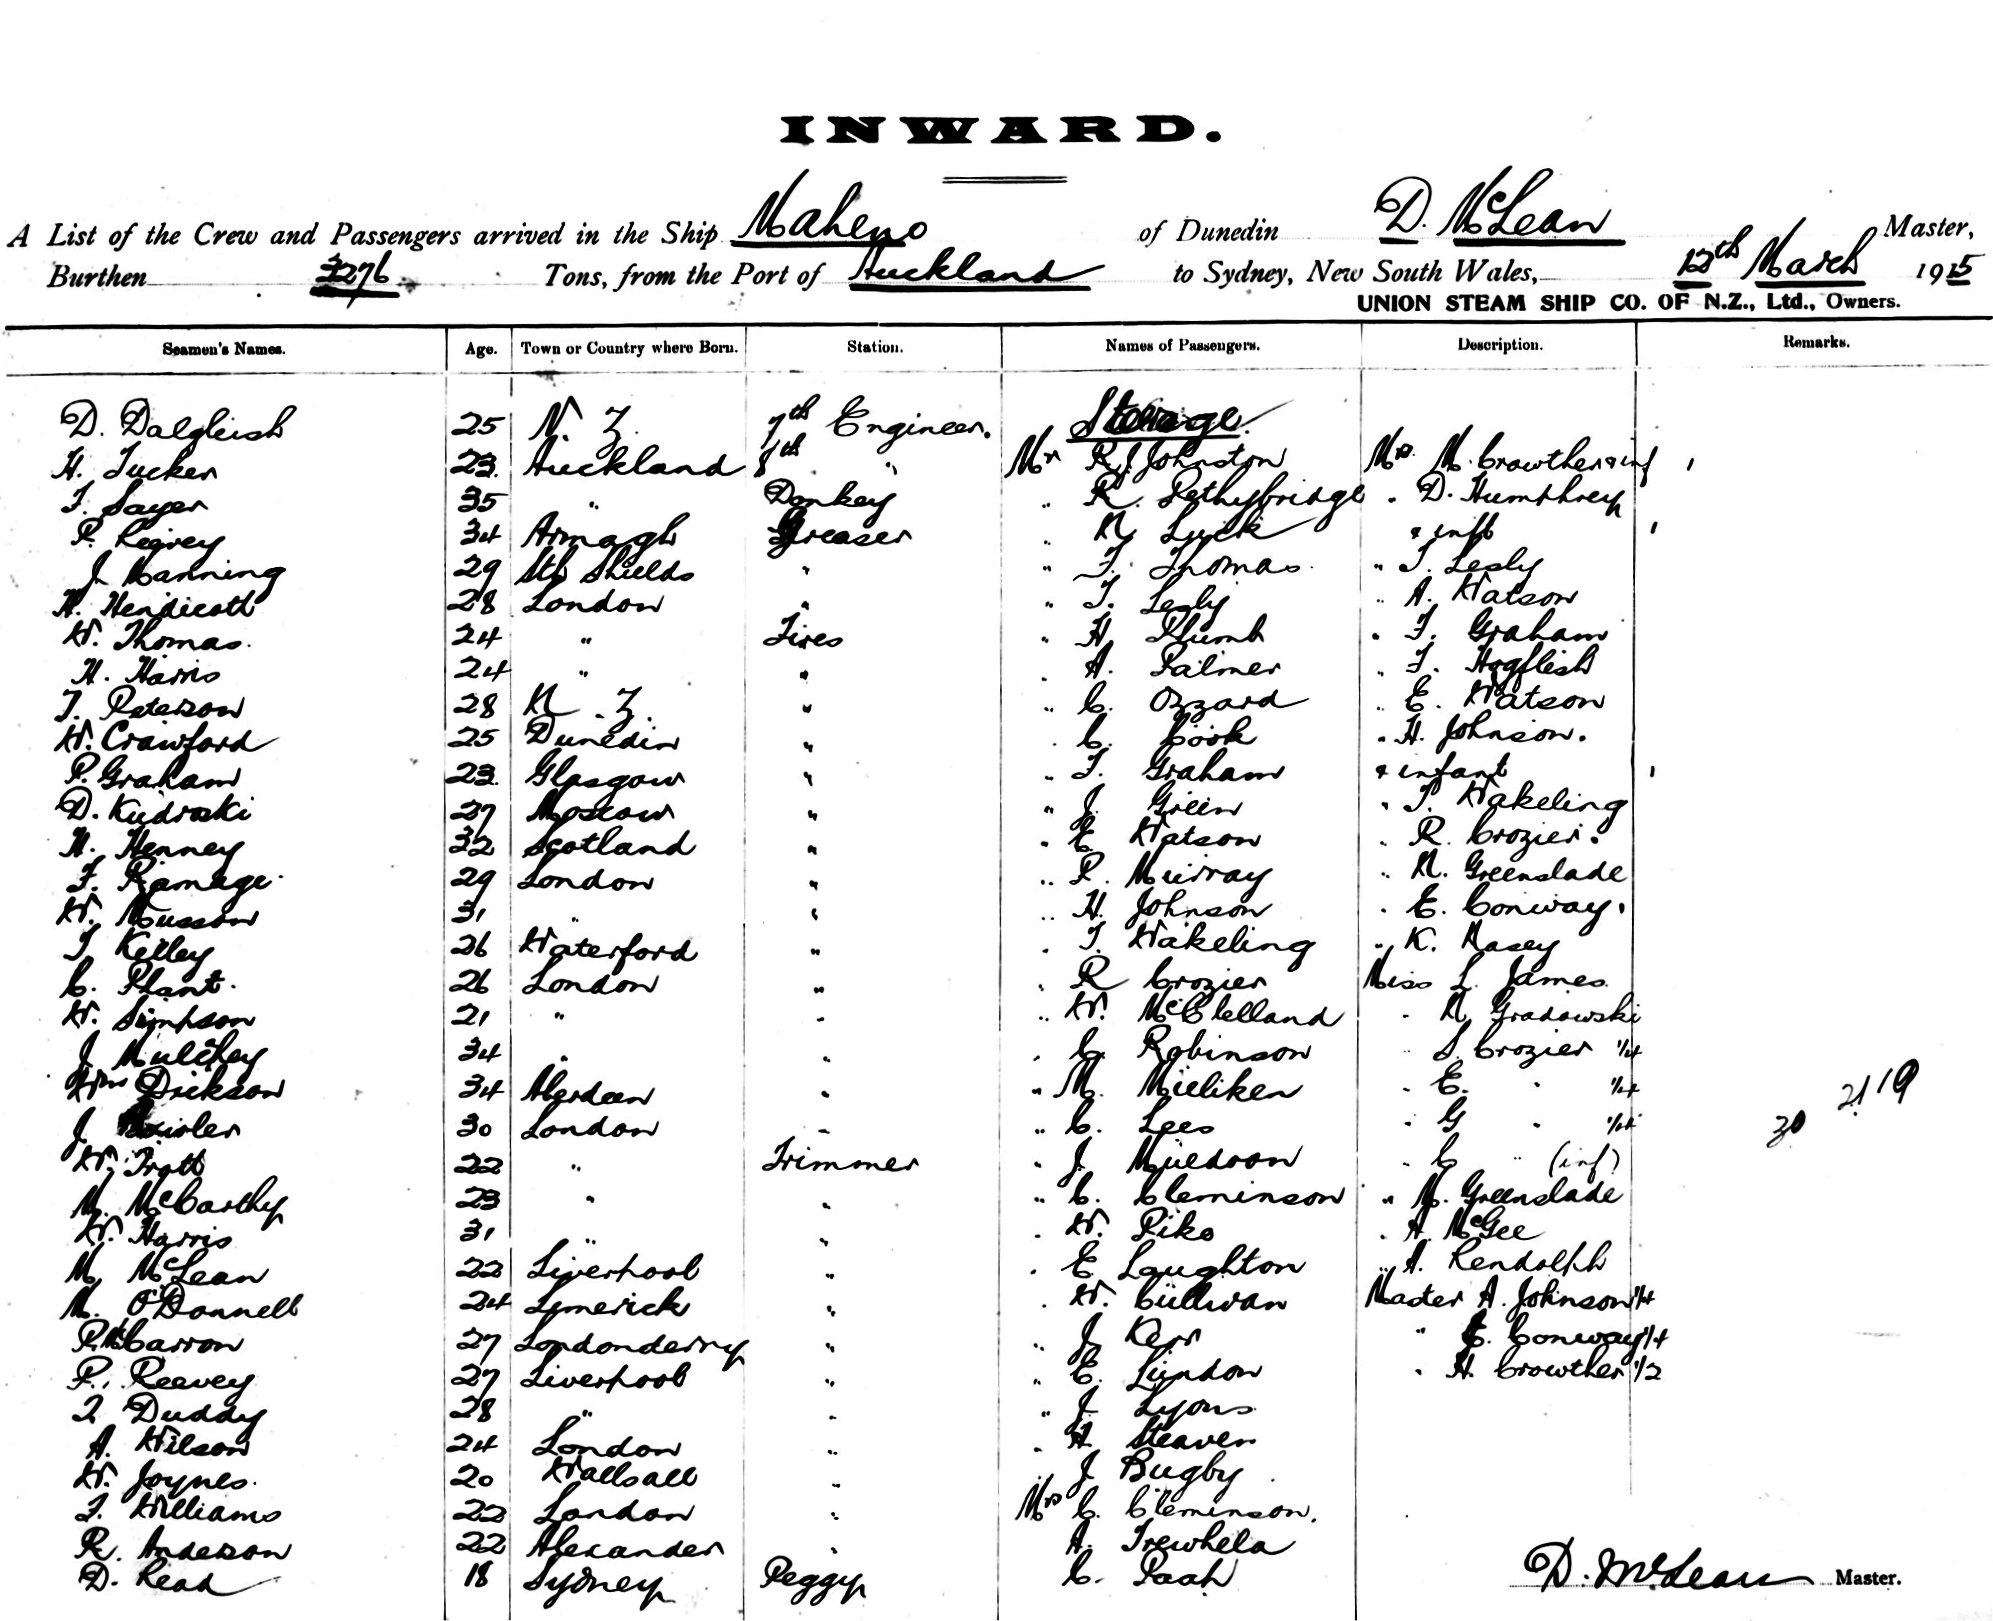 INWARD.
A List of the Crew and Passengers arrived in the Ship Maheno of Dunedin D. McLean Master,
Burthen 3276 Tons, from the Port of Auckland to Sydney, New South Wales, 12th March 1915
UNION STEAM SHIP CO. OF N.Z., Ltd., Owners.
Seamen's Names. Age. Town or Country where Born. Station. Names of Passengers. Description. Remarks.
D. Dalgleish 25 N. Z. 7th Engineer. Steerage
H. Tucker 23 Auckland 8th " Mr R. J. Johnston Mrs M. Crowther & inf 1
F. Sayer 35 " Donkey " R. Pethybridge " D. Humphrey
P. 34 Armagh Greaser " N Luck & inft 1
J. Manning 29 Sth Shields " " F. Thomas " T. Lesly
H. Hendicott 28 London " " T. Lesly " A. Watson
W. Thomas. 24 " Fires " H. Plumb " F. Graham
H. Harris 24 " " " A. Palmer " F.
T. Peterson 28 N. Z. " " C. Ozzard " E. Watson
W. Crawford 25 Dunedin " " C. Cook " H. Johnson.
P. Graham 23 Glasgow " " F. Graham & infant 1
D. Kudraski 27 Moscow " " J. Green " T. Wakeling
H. Henney 32 Scotland " " E Watson " R. Crozier.
F. Ramage. 29 London " " P. Murray " N. Greenslade
W. Musson 31 " " " H. Johnson " E. Conway.
T Kelley 26 Waterford " " T. Wakeling " K. Nasey
C. Plant. 26 London " " R Crozier Miss L. James
W. Simpson 21 " " " W. McClelland " N Gradowski
J Mulchay 34 " " " C. Robinson " S. Crozier 1/4
Wm Dickson 34 Aberdeen " " M. Milliken " E. " 1/4 2119
J. 30 London " " C. Lees " G " 1/4 30
W. Trott 22 " Trimmer " J. Muldoon " C " (inf)
M. McCarthy 23 " " " C. Cleminson " M. Greenslade
W. Harris 31 " " " W. Pike " A McGee
M. McLean 22 Liverpool " " E Laughton " A. Rendolph
M. O'Donnell 24 Limerick " " W. Cullivan Master A. Johnson 1/4
P. McCarron 27 Londonderry " " J Kerr " E. Conway 1/4
P. Reevey 27 Liverpool " " E. Lundon " H. Crowther 1/2
J. Duddy 28 " " " J Lyons
A. Wilson 24 London " " H Steaven
W. Joynes. 20 Wallsall " J Bugby
F. Williams 22 London " Mrs C. Cleminson.
R. Anderson 22 Alexander " A. Trewhela
D. Read 18 Sydney Peggy C. Paah
D. McLean Master.